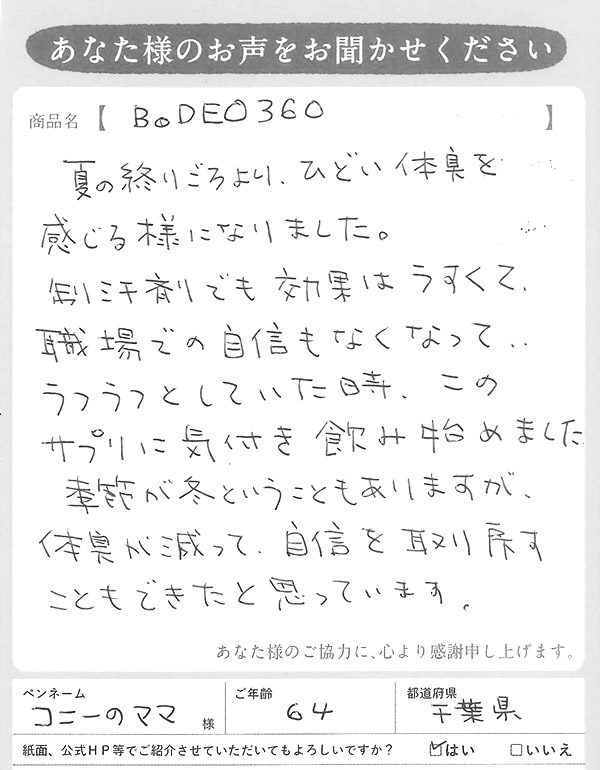 あなた様のお声をお聞かせください
商品名【 BoDEO360 】
夏の終りごろより、ひどい体臭を
感じる様になりました。
制汗剤でも効果はうすくて、
職場での自信もなくなって‥
うつうつとしていた時、この
サプリに気付き飲み始めました
季節が冬ということもありますが、
体臭が減って、自信を取り戻す
こともできたと思っています。
あなた様のご協力に、心より感謝申し上げます。
ペンネーム ご年齢 都道府県
コニーのママ 様 64 千葉県
紙面、公式HP等でご紹介させていただいてもよろしいですか？ ☑はい □いいえ